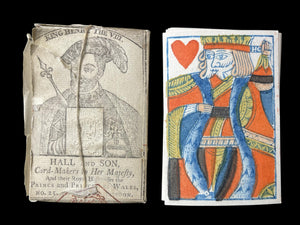 KING HENRY THE VIII.
HALL and SON.
Card-Makers to Her Majesty,
And their Royal the
PRINCES and WALES,
NO. 25.